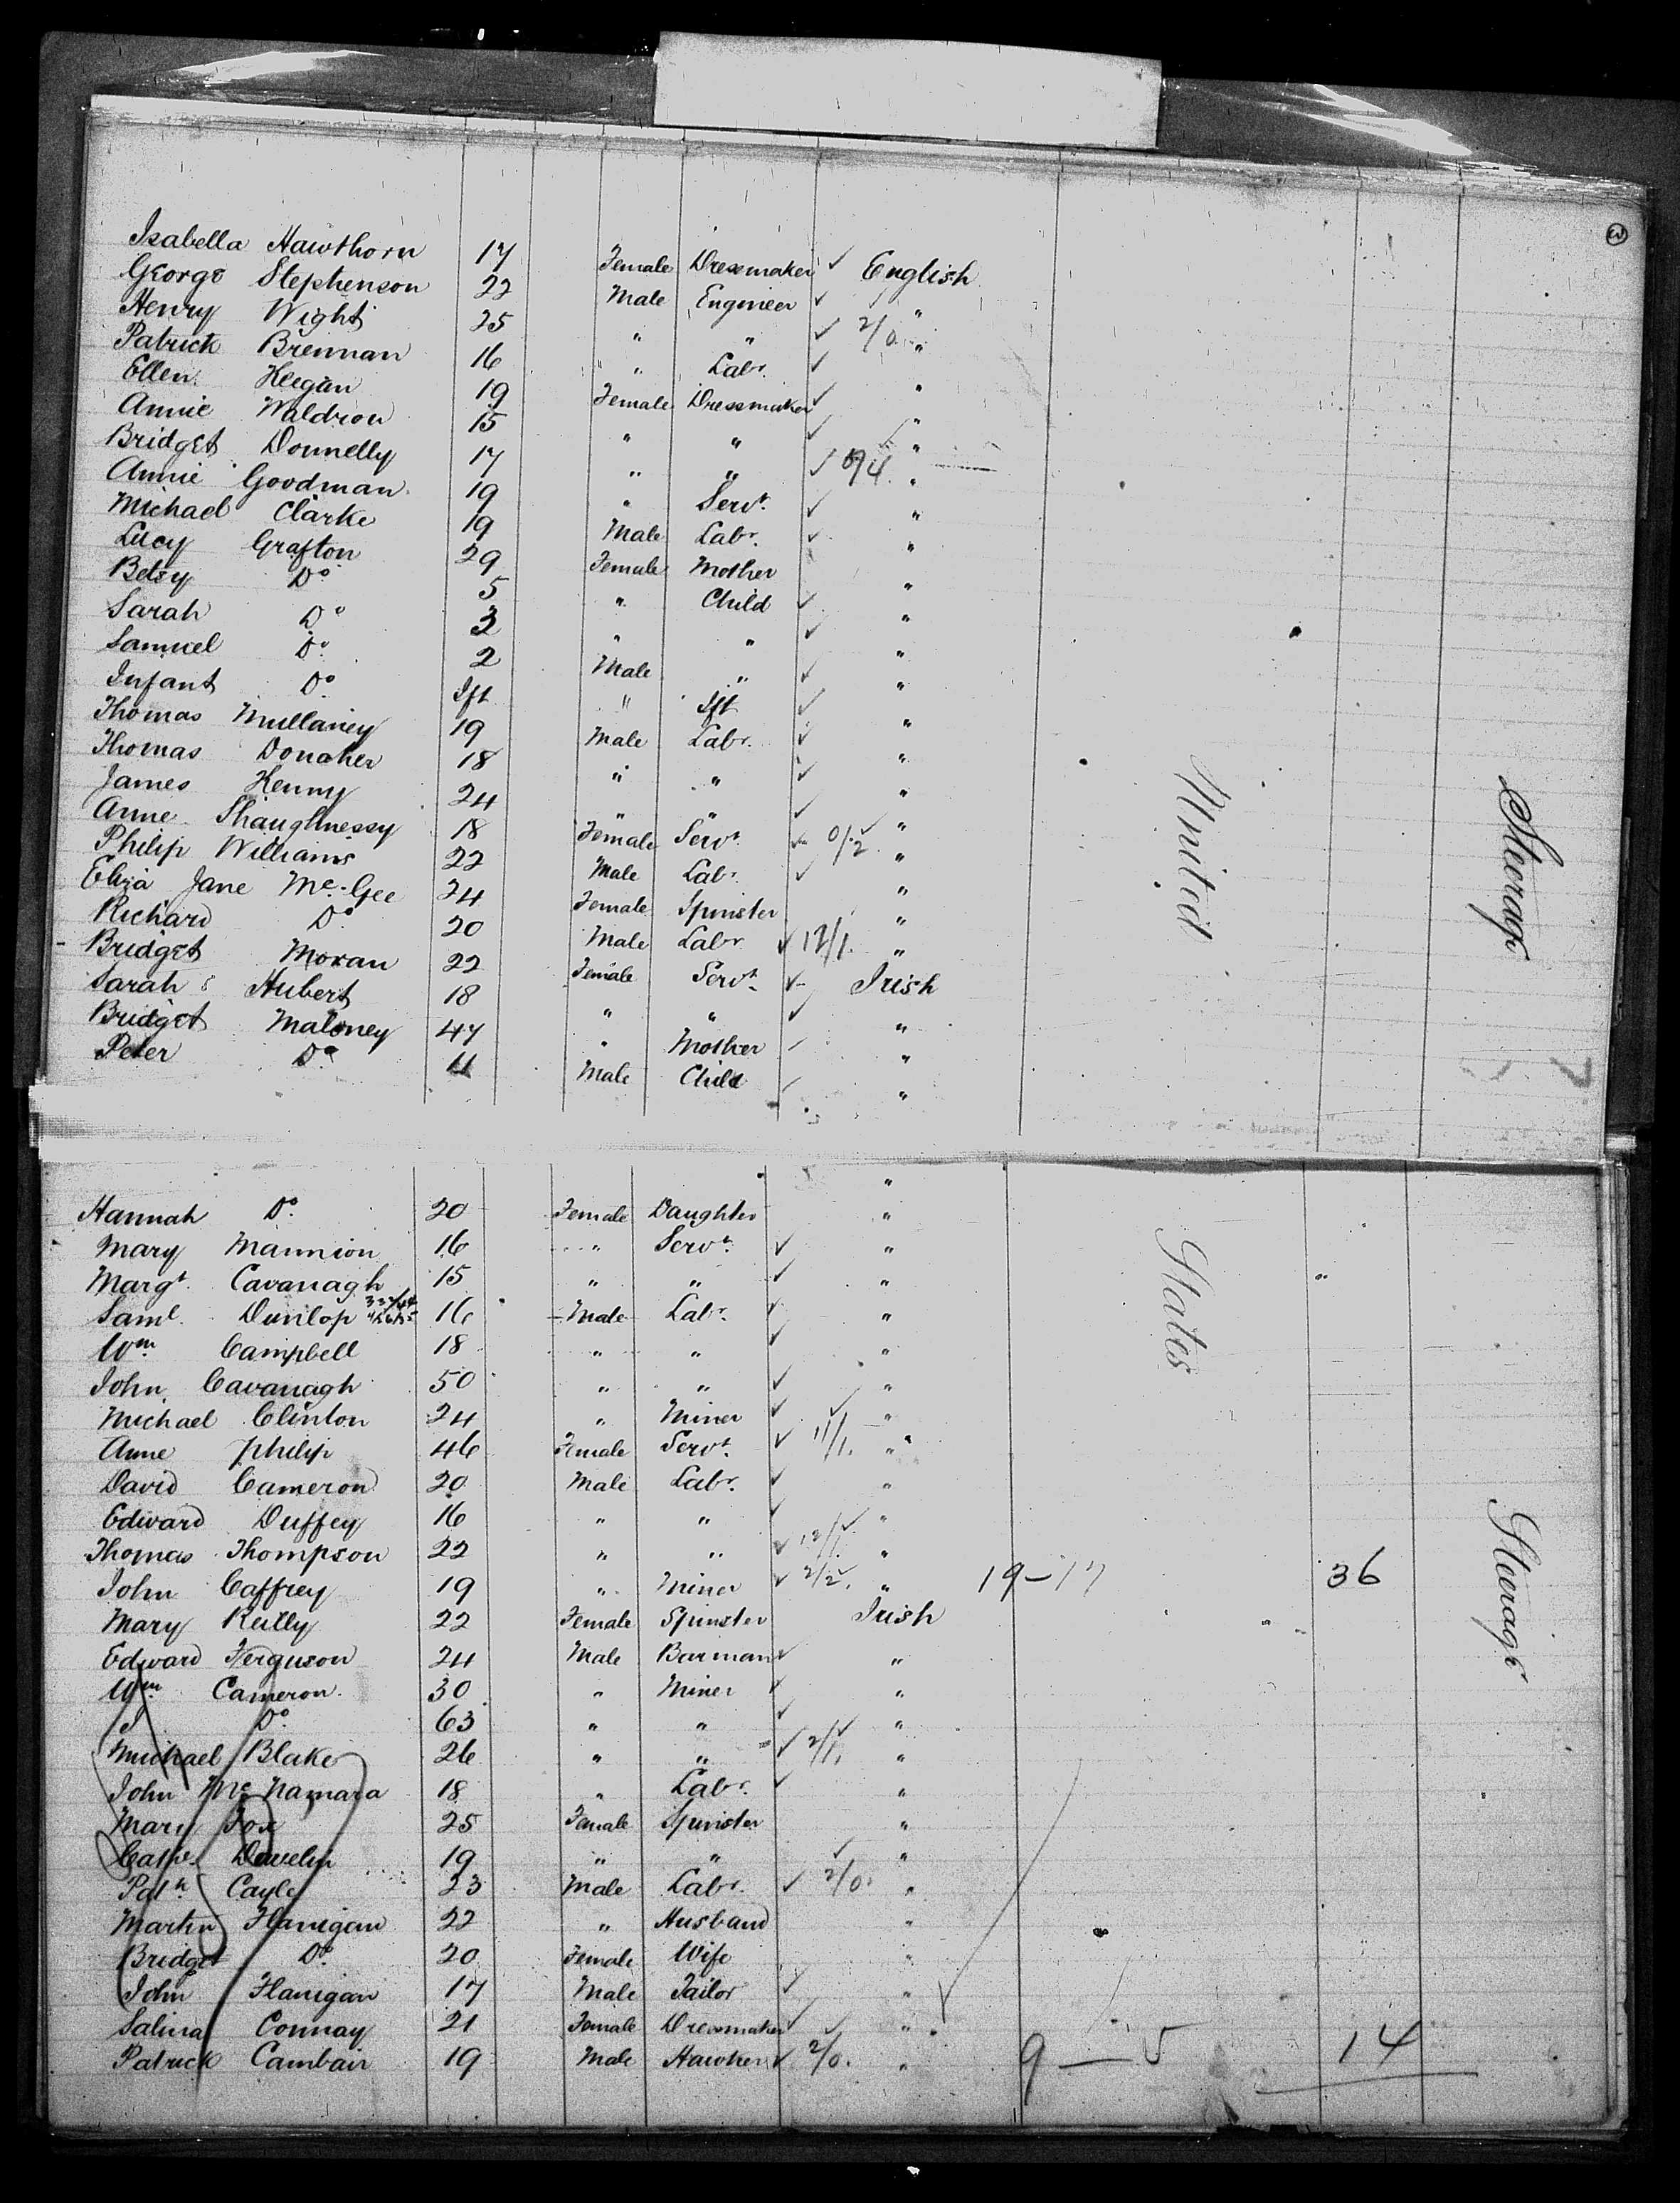 Isabella Hawthorn 17 Female Dressmaker ✓ English
George Stephenson 22 Male Engineer ✓ "
Henry Wight 25 " " ✓ 2/0. "
Patrick Brennan 16 " Labr. ✓ "
Ellen Keegan 19 Female Dressmaker ✓ "
Annie Waldron 15 " " ✓ "
Bridget Donnelly 17 " " ✓ "
Annie Goodman 19 " Servt. ✓ "
Michael Clarke 19 Male Labr. ✓ "
Lucy Grafton 29 Female Mother "
Betsy Do 5 " Child ✓ "
Sarah Do 3 " " ✓ "
Samuel Do 2 Male " ✓ "
Infant Do Ift " Ift ✓ "
Thomas Mullaney 19 Male Labr. ✓ "
Thomas Donaher 18 " " ✓ "
James Kenny 24 " " ✓ "
Anne Shaughnessy 18 Female Servt. 0/2 "
Philip Williams 22 Male Labr. ✓ "
Eliza Jane Mc.Gee 24 Female Spinster "
Richard Do 20 Male Labr. ✓ 12/1. "
Bridget Moran 22 Female Servt. ✓ Irish
Sarah Hubert 18 " " ✓ "
Bridget Maloney 47 " Mother "
Peter Do 11 Male Child "
United
Steerage
Hannah Do 20 Female Daughter "
Mary Mannion 16 " Servt. ✓ "
Margt. Cavanagh 15 " " ✓ "
Saml. Dunlop 16 Male Labr. ✓ "
Wm. Campbell 18 " " ✓ "
John Cavanagh 50 " " ✓ "
Michael Clinton 24 " Miner ✓ "
Anne Philip 46 Female Servt. ✓ 11/1. "
David Cameron 20 Male Labr. ✓ "
Edward Duffey 16 " " ✓ "
Thomas Thompson 22 " " ✓ 12/1. "
John Caffrey 19 " Miner ✓ 2/2. " 19–17 36
Mary Reilly 22 Female Spinster Irish
Edward Ferguson 24 Male Barman ✓ "
Wm. Cameron 30 " Miner ✓ "
J Do 63 " " ✓ "
Michael Blake 26 " " ✓ 2/1. "
John Mc Namara 18 " Labr. ✓ "
Mary Fox 25 Female Spinster "
Cathe. 19 " " ✓ "
Patk. Cayle 23 Male Labr. ✓ 2/0. "
Martin Flanigan 22 " Husband "
Bridget Do 20 Female Wife "
John Flanigan 17 Male Tailor ✓ "
Salina Connay 21 Female Dressmaker ✓ "
Patrick Cambair 19 Male Hawker ✓ 2/0. " 9–5 14
States
Steerage